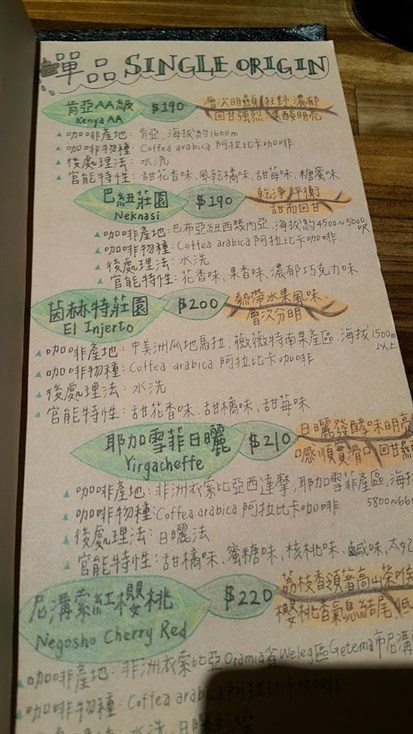 單品 SINGLE ORIGIN
肯亞AA級 $190 層次明顯 狂野 濃郁
Kenya AA 回甘強烈 果酸明亮
咖啡產地：肯亞，海拔約1600m
咖啡物種：Coffea arabica 阿拉比卡咖啡
後處理法：水洗
官能特性：甜花香味、風乾橘味、甜莓味、糖蜜味
巴紐莊園 $190 乾淨 平衡
Neknasi 甜而回甘
咖啡產地：巴布亞紐西幾內亞，海拔約4500~5000呎
咖啡物種：Coffea arabica 阿拉比卡咖啡
後處理法：水洗
官能特性：花香味、果香味、濃郁巧克力味
茵赫特莊園 $200 軟帶水果風味
El Injerto 層次分明
咖啡產地：中美洲瓜地馬拉，薇薇特南果產區，海拔1500m以上
咖啡物種：Coffea arabica 阿拉比卡咖啡
後處理法：水洗
官能特性：甜花香味、甜橘味、甜莓味
耶加雪菲日曬 $210 日曬發酵味明
Yirgacheffe 口感順實滑口 回甘
咖啡產地：非洲衣索比亞西達摩，耶加雪菲產區，海
咖啡物種：Coffea arabica 阿拉比卡咖啡 5800~66
後處理法：日曬法
官能特性：甜橘味、蜜糖味、核桃味、鹹味、
尼溝索紅櫻桃 $220 荔枝香領著高山茶
Negosho Cherry Red 櫻桃香氣息結尾
咖啡產地：非洲衣索比亞Oromia省Weleg區Getema市尼溝
咖啡物種：Coffea arabica 阿拉比卡咖啡
水洗